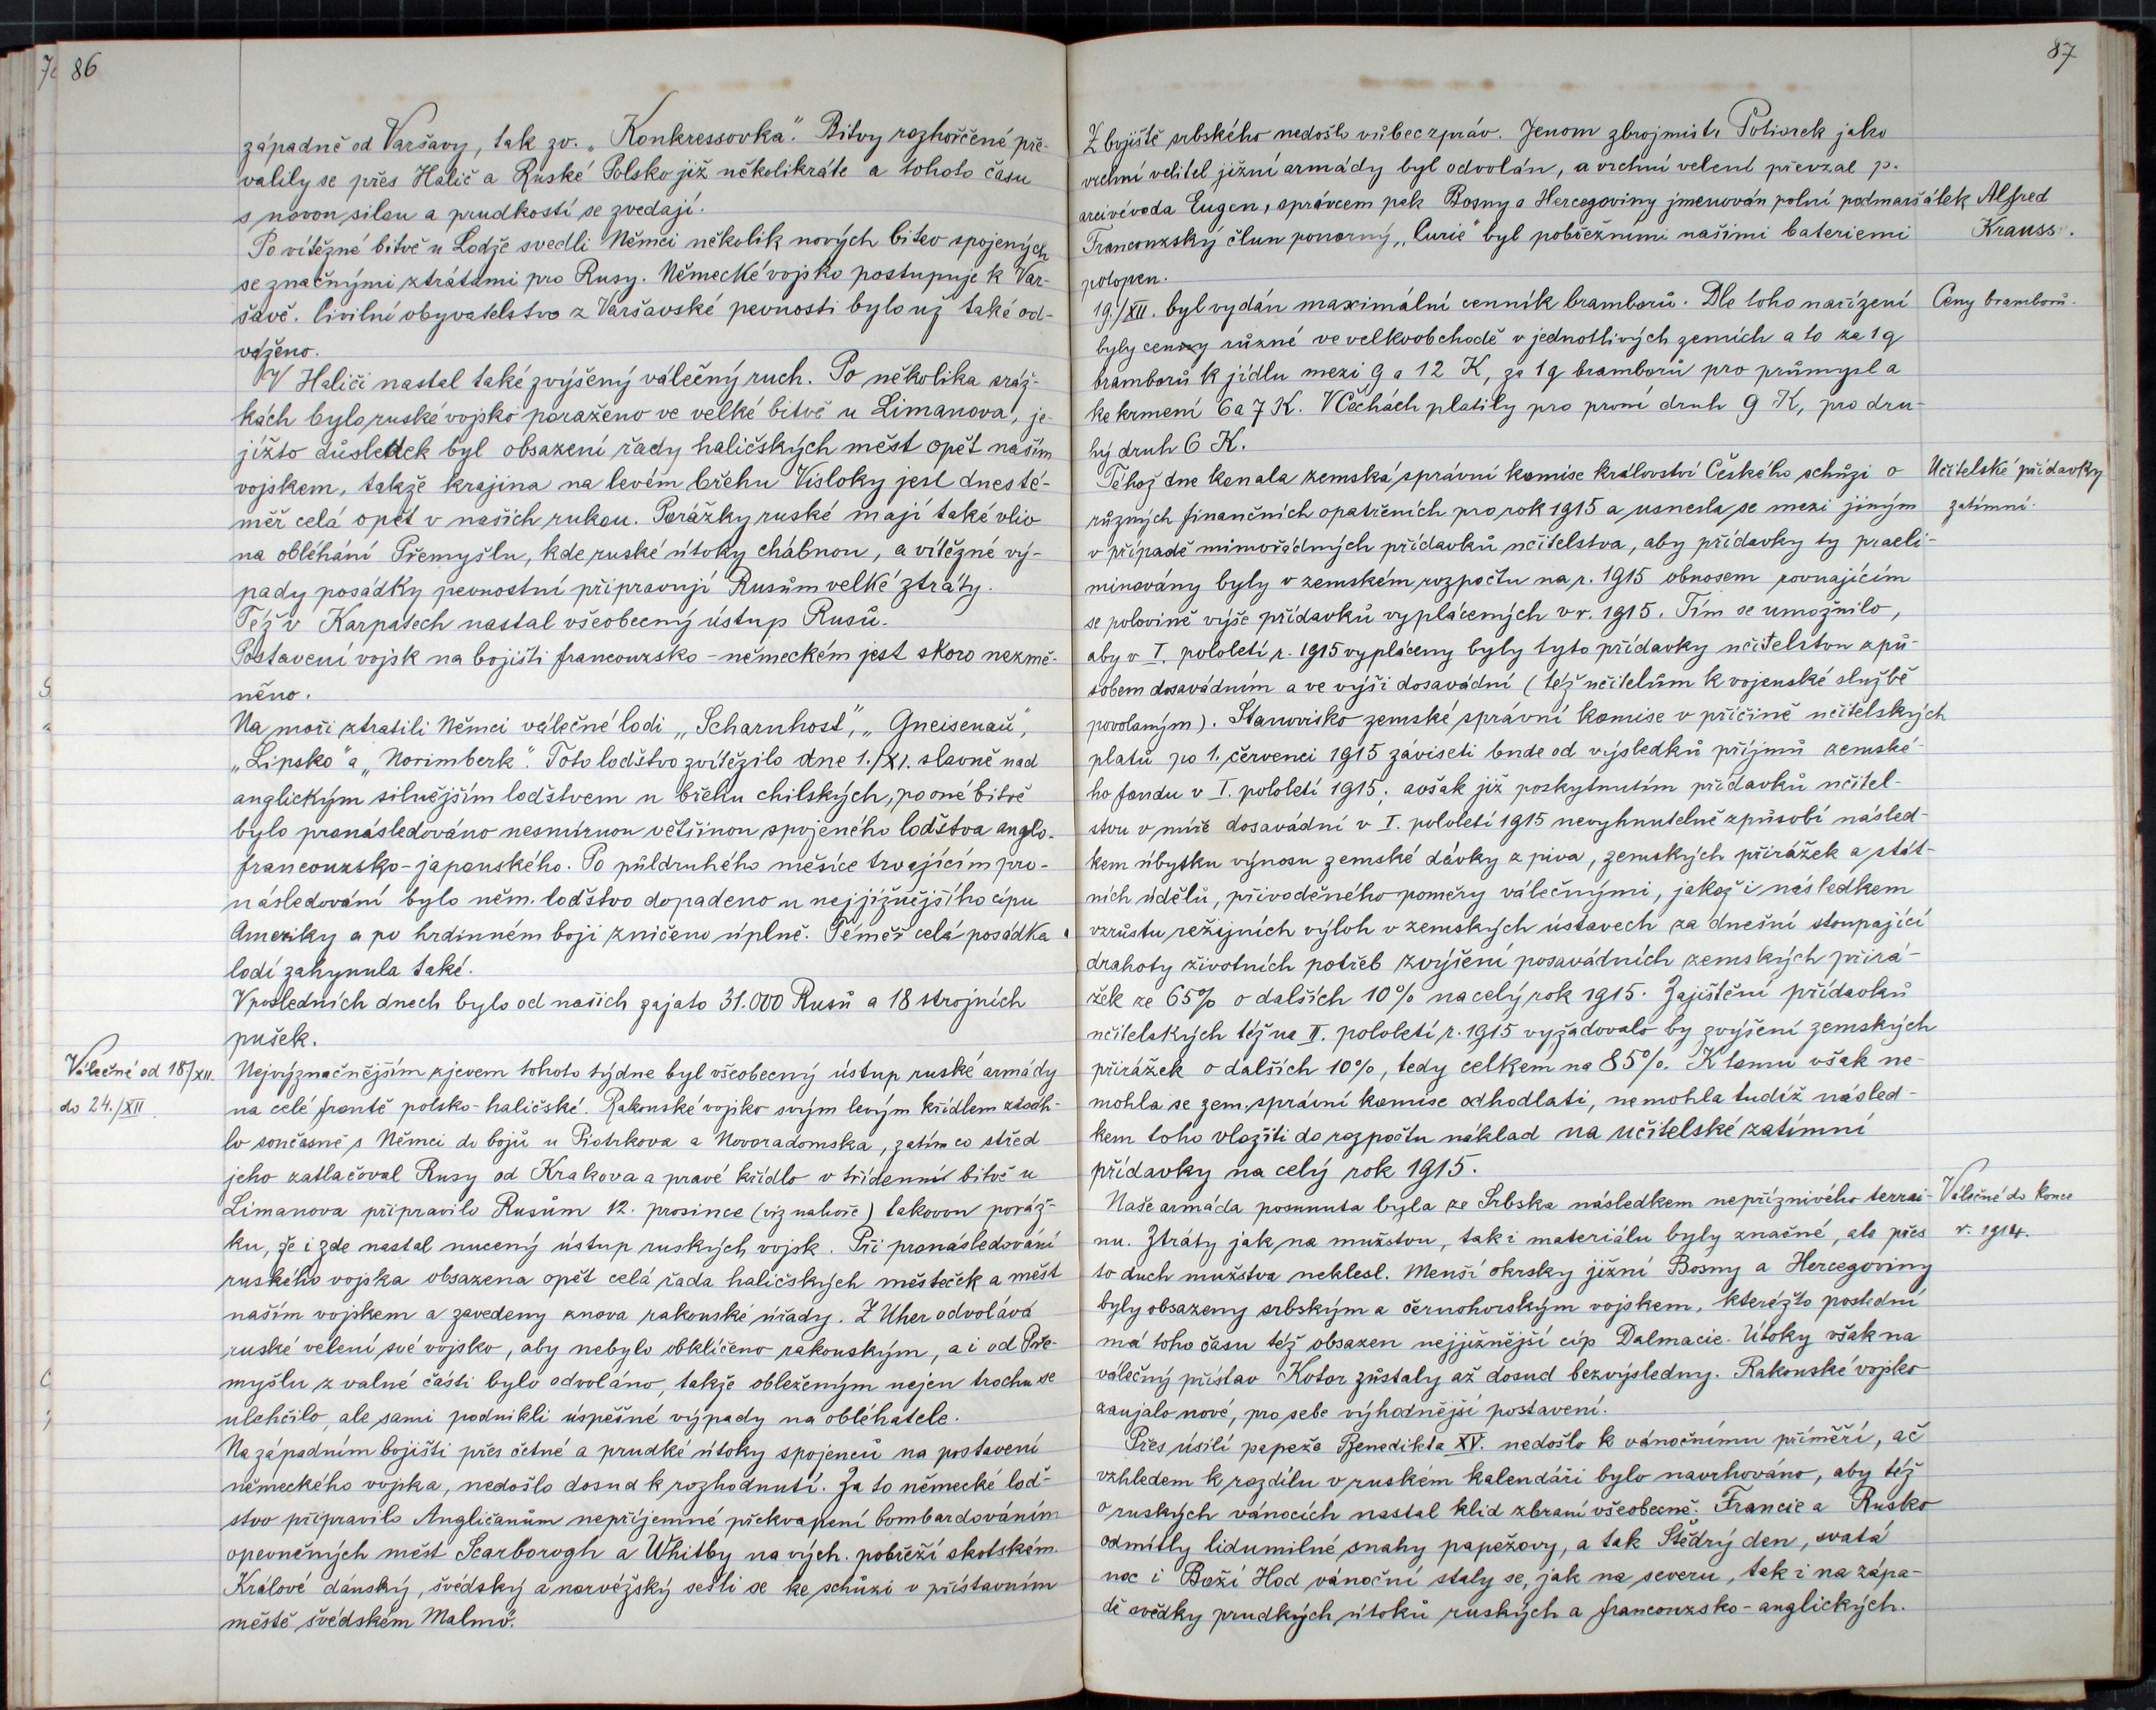 86
západně od Varšavy, tak zv. „Konkressovka". Bitvy rozhořčené pře-
valily se přes Halič a Ruské Polsko již několikráte a tohoto času
s novou silou a prudkostí se zvedají.
Po vítězné bitvě u Lodže svedli Němci několik nových bitev spojených
se značnými ztrátami pro Rusy. Německé vojsko postupuje k Var-
šavě. Civilní obyvatelstvo z Varšavské pevnosti bylo už také od-
váženo.
V Haliči nastal také zvýšený válečný ruch. Po několika sráž-
kách bylo ruské vojsko poraženo ve velké bitvě u Limanova, je-
jížto důsledek byl obsazení řady haličských měst opět naším
vojskem, takže krajina na levém břehu Visloky jest dnes té-
měř celá opět v našich rukou. Porážky ruské mají také vliv
na obléhání Přemyšlu, kde ruské útoky chábnou, a vítězné vý-
pady posádky pevnostní připravují Rusům velké ztráty.
Též v Karpatech nastal všeobecný ústup Rusů.
Postavení vojsk na bojišti francouzsko-německém jest skoro nezmě-
něno.
Na moři ztratili Němci válečné lodi „Scharnhost", „Gneisenau",
„Lipsko" a „Norimberk". Toto loďstvo zvítězilo dne 1./XI. slavně nad
anglickým silnějším loďstvem u břehu chilských, po oné bitvě
bylo pronásledováno nesmírnou většinou spojeného loďstva anglo-
francouzsko-japonského. Po půldruhého měsíce trvajícím pro-
následování bylo něm. loďstvo dopadeno u nejjižnějšího cípu
Ameriky a po hrdinném boji zničeno úplně. Téměř celá posádka
lodí zahynula také.
V posledních dnech bylo od našich zajato 31.000 Rusů a 18 strojních
pušek.
Válečné od 18/XII.
do 24./XII.
Nejvýznačnějším zjevem tohoto týdne byl všeobecný ústup ruské armády
na celé frontě polsko-haličské. Rakouské vojsko svým levým křídlem zasáh-
lo současně s Němci do bojů u Piotrkova a Novoradomska, zatím co střed
jeho zatlačoval Rusy od Krakova a pravé křídlo v třídenní bitvě u
Limanova připravilo Rusům 12. prosince (viz nahoře) takovou poráž-
ku, že i zde nastal nucený ústup ruských vojsk. Při pronásledování
ruského vojska obsazena opět celá řada haličských městeček a měst
naším vojskem a zavedeny znova rakouské úřady. Z Uher odvolává
ruské velení své vojsko, aby nebylo obklíčeno rakouským, a i od Pře-
myšlu z valné části bylo odvoláno, takže obleženým nejen trochu se
ulehčilo, ale sami podnikli úspěšné výpady na obléhatele.
Na západním bojišti přes četné a prudké útoky spojenců na postavení
německého vojska, nedošlo dosud k rozhodnutí. Za to německé loď-
stvo připravilo Angličanům nepříjemné překvapení bombardováním
opevněných měst Scarborogh a Whitby na vých. pobřeží skotském.
Králové dánský, švédský a norvéžský sešli se ke schůzi v přístavním
městě švédském Malmö.
87
Z bojiště srbského nedošlo vůbec zpráv. Jenom zbrojmistr Potiorek jako
vrchní velitel jižní armády byl odvolán, a vrchní velení převzal p.
arcivévoda Eugen, správcem pak Bosny a Hercegoviny jmenován polní podmaršálek Alfred
Krauss.
Francouzský člun ponorný „Curie" byl pobřežními našimi bateriemi
potopen.
Ceny bramborů.
19./XII. byl vydán maximální cenník bramborů. Dle toho nařízení
byly ceny různé ve velkoobchodě v jednotlivých zemích a to za 1 q
bramborů k jídlu mezi 9 a 12 K, za 1 q bramborů pro průmysl a
ke krmení 6 a 7 K. V Čechách platily pro první druh 9 K, pro dru-
hý druh 6 K.
Učitelské přídavky
zatímní.
Téhož dne konala zemská správní komise království Českého schůzi o
různých finančních opatřeních pro rok 1915 a usnesla se mezi jiným
v případě mimořádných přídavků učitelstva, aby přídavky ty praeli-
minovány byly v zemském rozpočtu na r. 1915 obnosem rovnajícím
se polovině výše přídavků vyplácených v r. 1915. Tím se umožnilo,
aby v I. pololetí r. 1915 vypláceny byly tyto přídavky učitelstvu způ-
sobem dosavádním a ve výši dosavádní (též učitelům k vojenské službě
povolaným). Stanovisko zemské správní komise v příčině učitelských
platů po 1. červenci 1915 záviseti bude od výsledků příjmů zemské-
ho fondu v I. pololetí 1915; avšak již poskytnutím přídavků učitel-
stvu v míře dosavádní v I. pololetí 1915 nevyhnutelně způsobí násled-
kem úbytku výnosu zemské dávky z piva, zemských přirážek a stát-
ních údělů, přivoděného poměry válečnými, jakož i následkem
vzrůstu režijních výloh v zemských ústavech za dnešní stoupající
drahoty životních potřeb zvýšení posavádních zemských přirá-
žek ze 65% o dalších 10% na celý rok 1915. Zajištění přídavků
učitelských též na II. pololetí r. 1915 vyžadovalo by zvýšení zemských
přirážek o dalších 10%, tedy celkem na 85%. K tomu však ne-
mohla se zem. správní komise odhodlati, nemohla tudíž násled-
kem toho vložiti do rozpočtu náklad na učitelské zatímní
přídavky na celý rok 1915.
Válečné do konce
r. 1914.
Naše armáda posunuta byla ze Srbska následkem nepříznivého terrai-
nu. Ztráty jak na mužstvu, tak i materiálu byly značné, ale přes
to duch mužstva neklesl. Menší okrsky jižní Bosny a Hercegoviny
byly obsazeny srbským a černohorským vojskem, kteréžto poslední
má toho času též obsazen nejjižnější cíp Dalmacie. Útoky však na
válečný přístav Kotor zůstaly až dosud bezvýsledny. Rakouské vojsko
zaujalo nové, pro sebe výhodnější postavení.
Přes úsilí papeže Benedikta XV. nedošlo k vánočnímu příměří, ač
vzhledem k rozdílu v ruském kalendáři bylo navrhováno, aby též
o ruských vánocích nastal klid zbraní všeobecně. Francie a Rusko
odmítly lidumilné snahy papežovy, a tak Štědrý den, svatá
noc i Boží Hod vánoční staly se, jak na severu, tak i na zápa-
dě svědky prudkých útoků ruských a francouzsko-anglických.